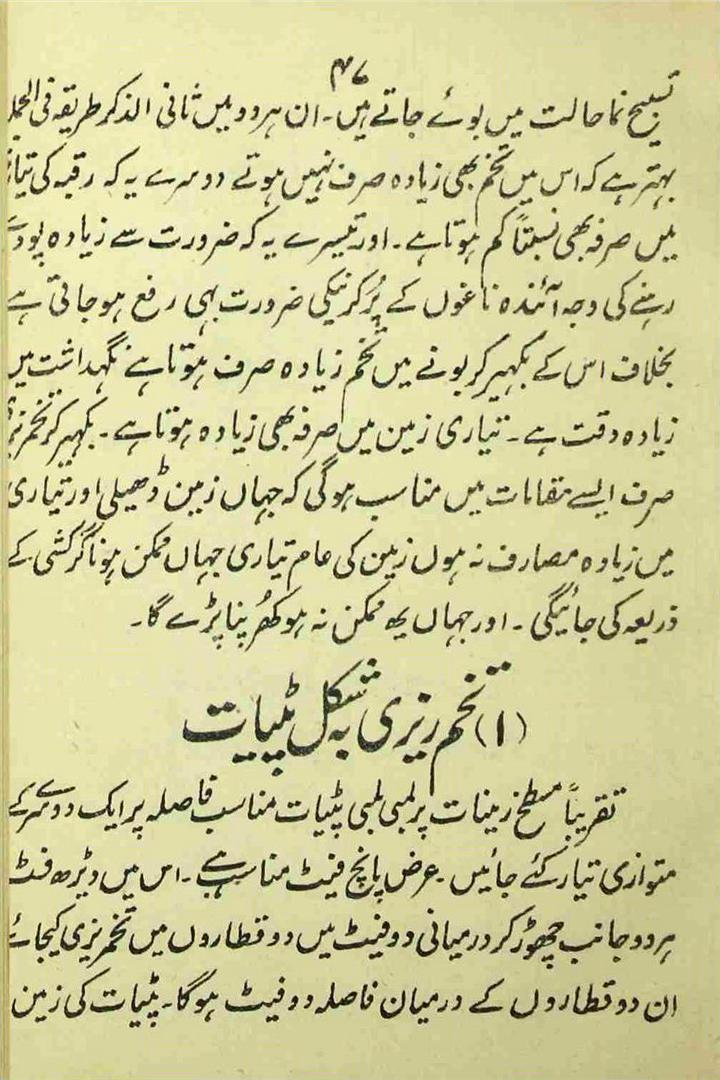 ۴۷
تسبیح نما حالت میں بوئے جاتے ہیں۔ ان ہر دو میں ثانی الذکر طریقہ فی الجملہ
بہتر ہے کہ اس میں تخم بھی زیادہ صرف نہیں ہوتے دوسرے یہ کہ رقبہ کی
میں صرفہ بھی نسبتاً کم ہوتا ہے۔ اور تیسرے یہ کہ ضرورت سے زیادہ پودے
رہنے کی وجہ آئندہ ناغوں کے پُر کرنیکی ضرورت بھی رفع ہو جاتی ہے
بخلاف اس کے بکھیر کر بونے میں تخم زیادہ صرف ہوتا ہے نگہداشت میں
زیادہ دقت ہے۔ تیاری زمین میں صرفہ بھی زیادہ ہوتا ہے۔ بکھیر کر
صرف ایسے مقامات میں مناسب ہوگی کہ جہاں زمین ڈھیلی اور تیاری
میں زیادہ مصارف نہ ہوں زمین کی عام تیاری جہاں ممکن ہو ناگر کشی کے
ذریعہ کی جائیگی۔ اور جہاں یہ ممکن نہ ہو کھُرپنا پڑے گا۔
(۱) تخم ریزی بہ شکل پٹیات
تقریباً مسطح زمینات پر لمبی لمبی پٹیات مناسب فاصلہ پر ایک دوسرے کے
متوازی تیار کئے جائیں۔ عرض پانچ فیٹ مناسب ہے۔ اس میں ڈیڑھ فٹ
ہر دو جانب چھوڑ کر درمیانی دو فیٹ میں دو قطاروں میں تخمریزی کیجائے
ان دو قطاروں کے درمیان فاصلہ دو فیٹ ہوگا۔ پٹیات کی زمین